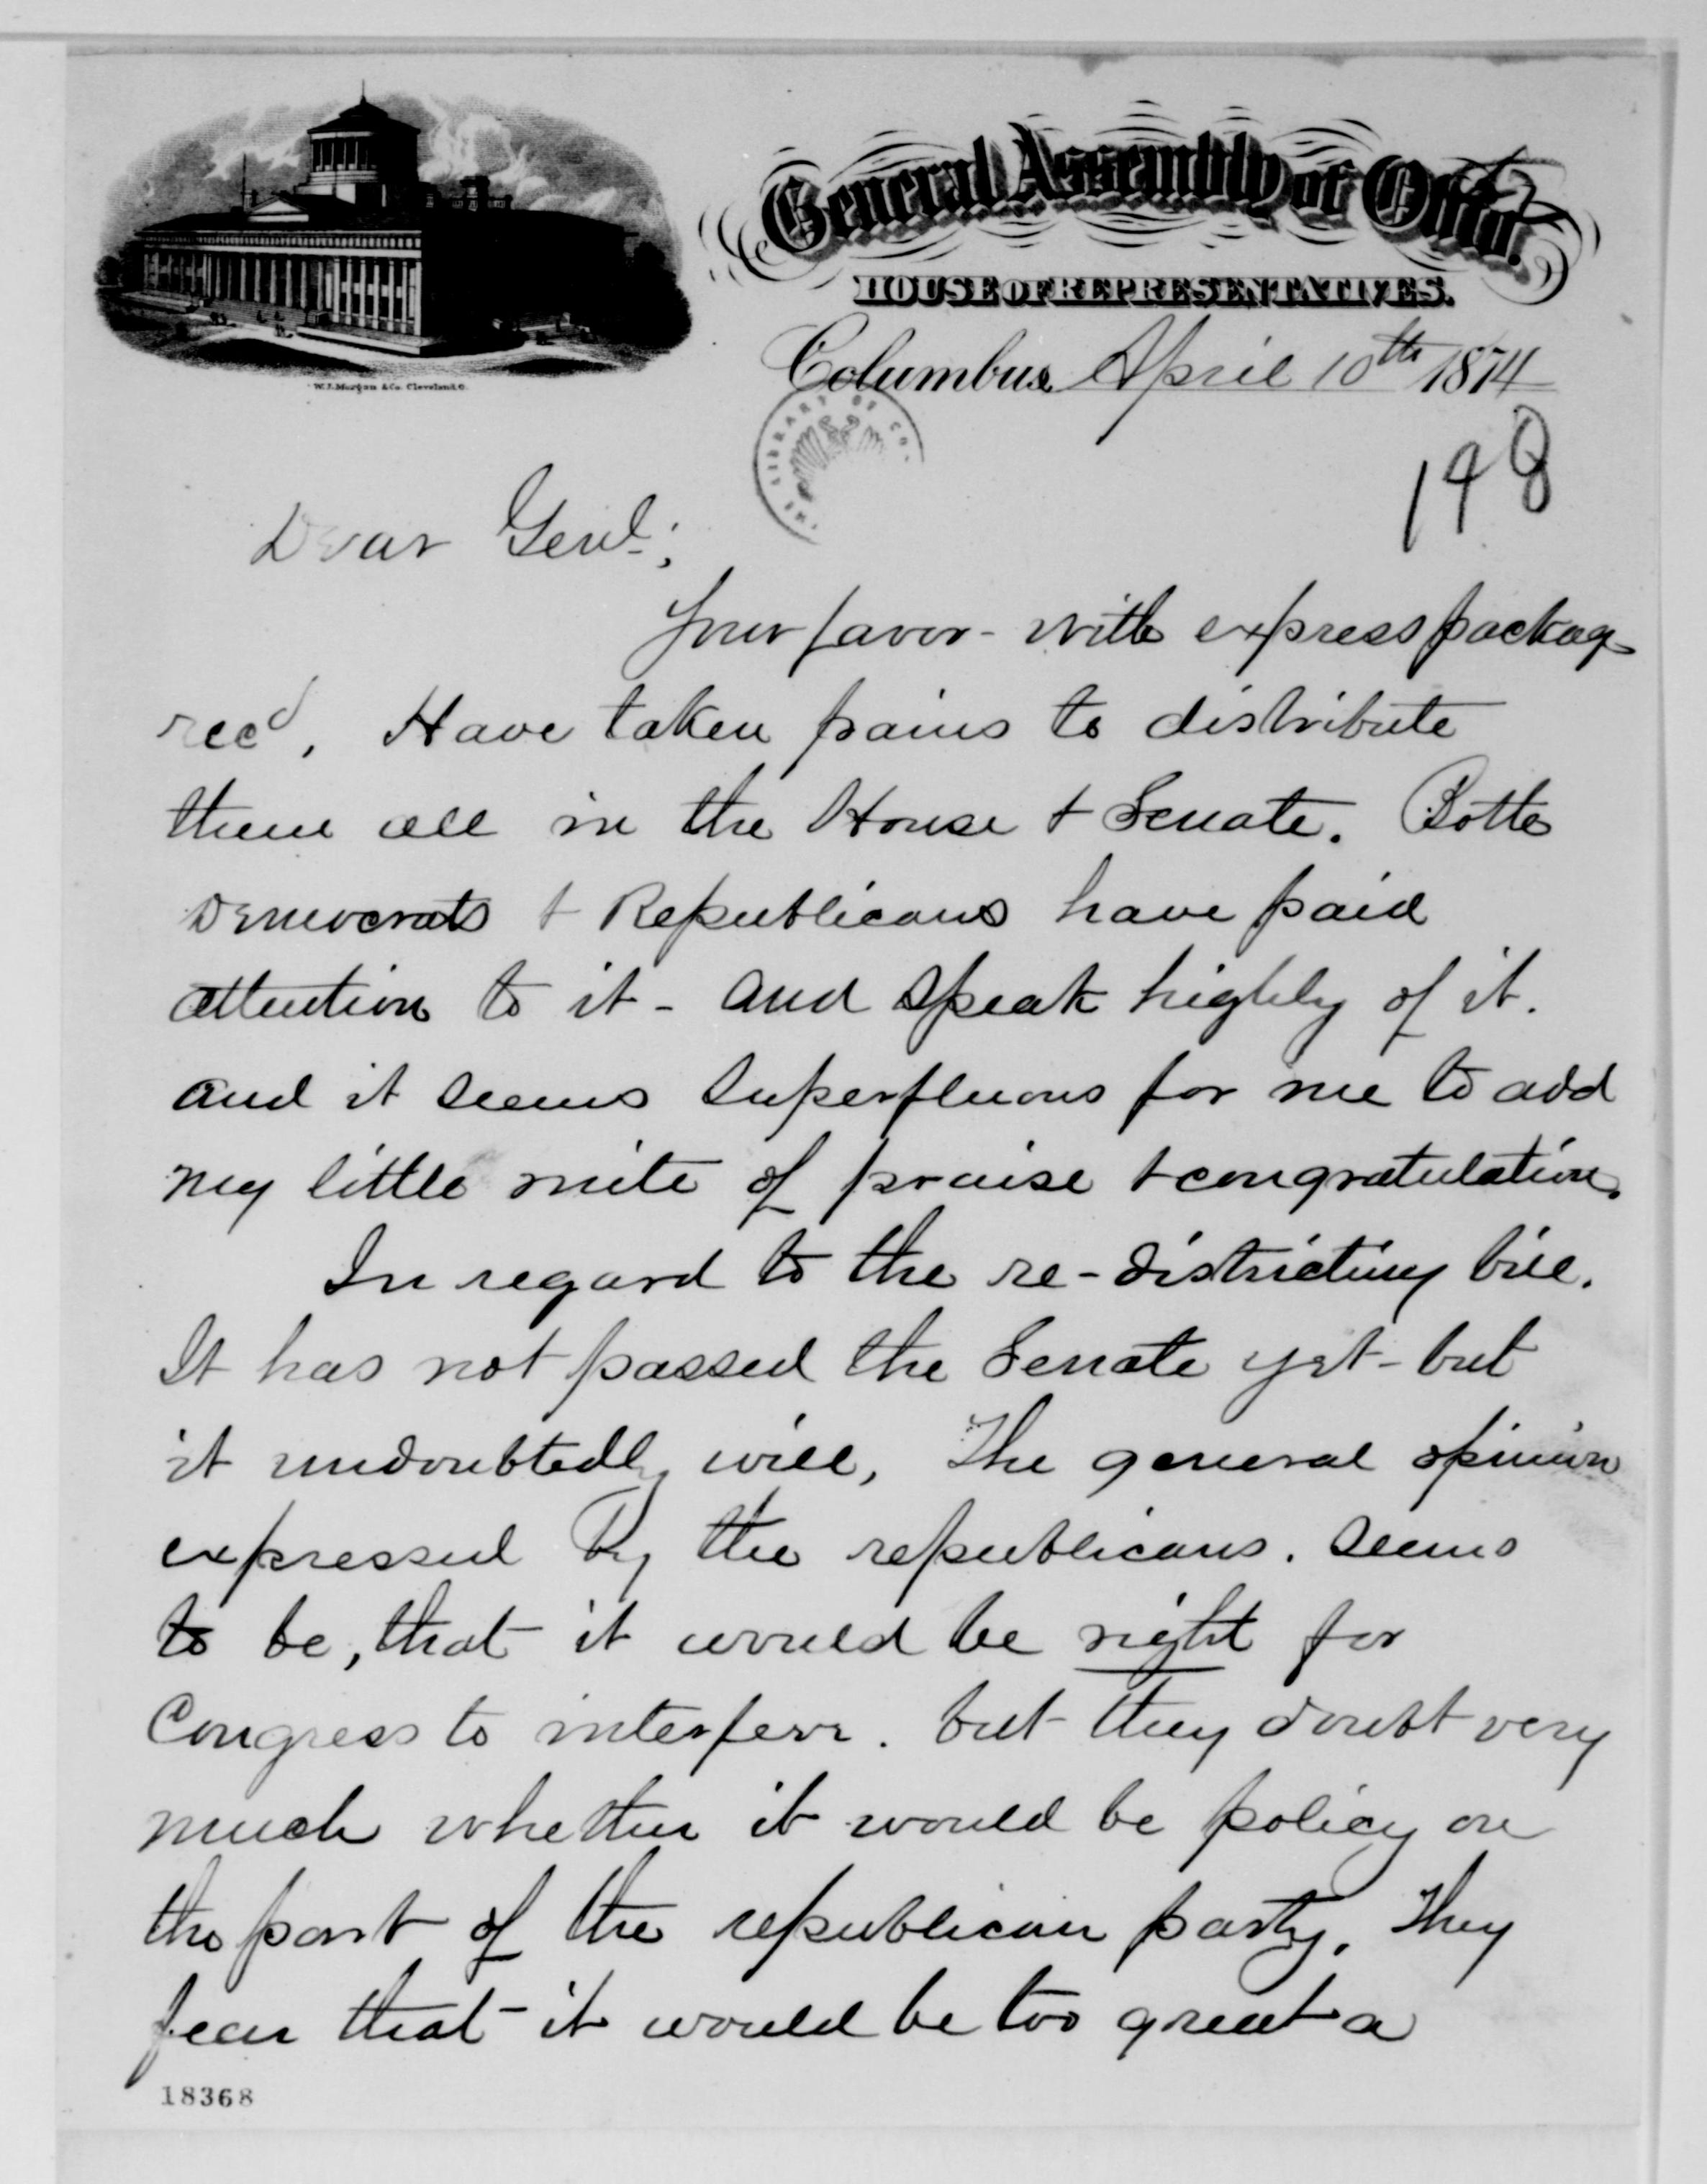 General Assembly of Ohio.
HOUSE OF REPRESENTATIVES.
W.J. Morgan & Co. Cleveland, O.
Columbus April 10th 1874
THE LIBRARY OF CO
198
Dear Genl.;
Your favor - with express package
recd. Have taken pains to distribute
them all in the House & Senate. Both
Democrats & Republicans have paid
attention to it - and speak highly of it.
and it seems superfluous for me to add
my little mite of praise & congratulation.
In regard to the re-districting bill.
It has not passed the Senate yet - but
it undoubtedly will, The general opinion
expressed by the republicans. seems
to be, that it would be right for
Congress to interfere. but they doubt very
much whether it would be policy on
the part of the republican party. They
fear that it would be too great a
18368